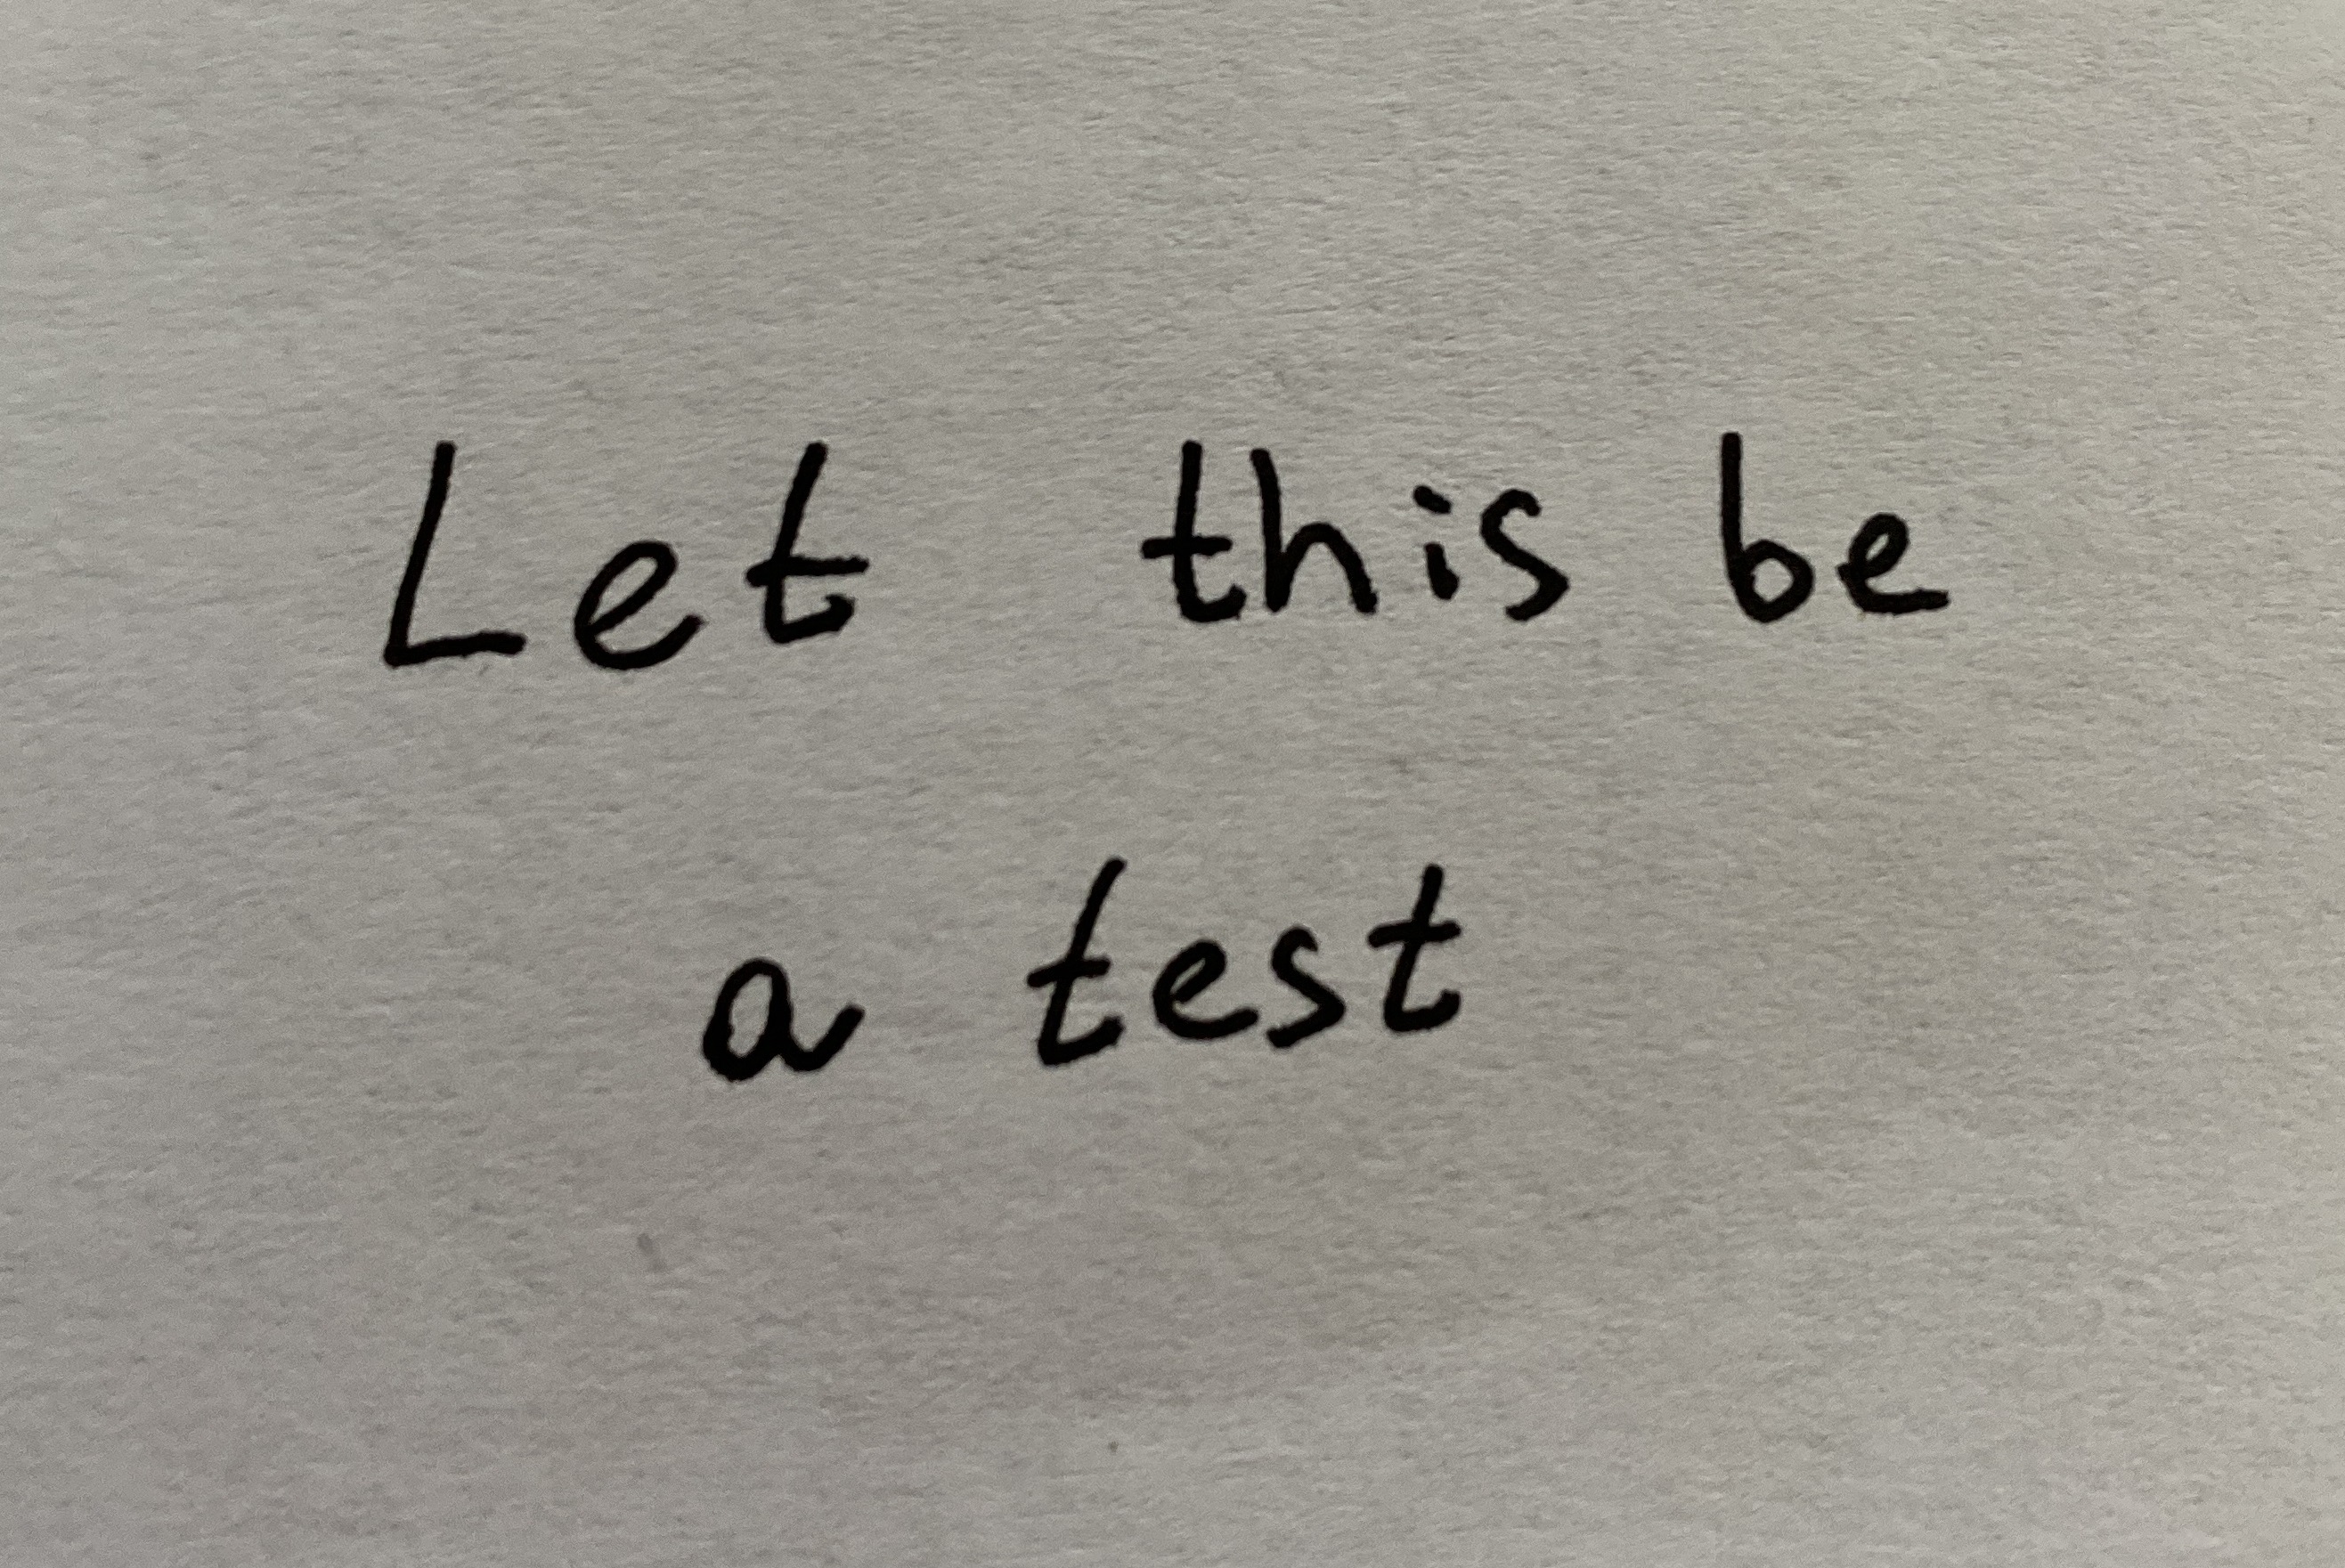 Let this be
a test